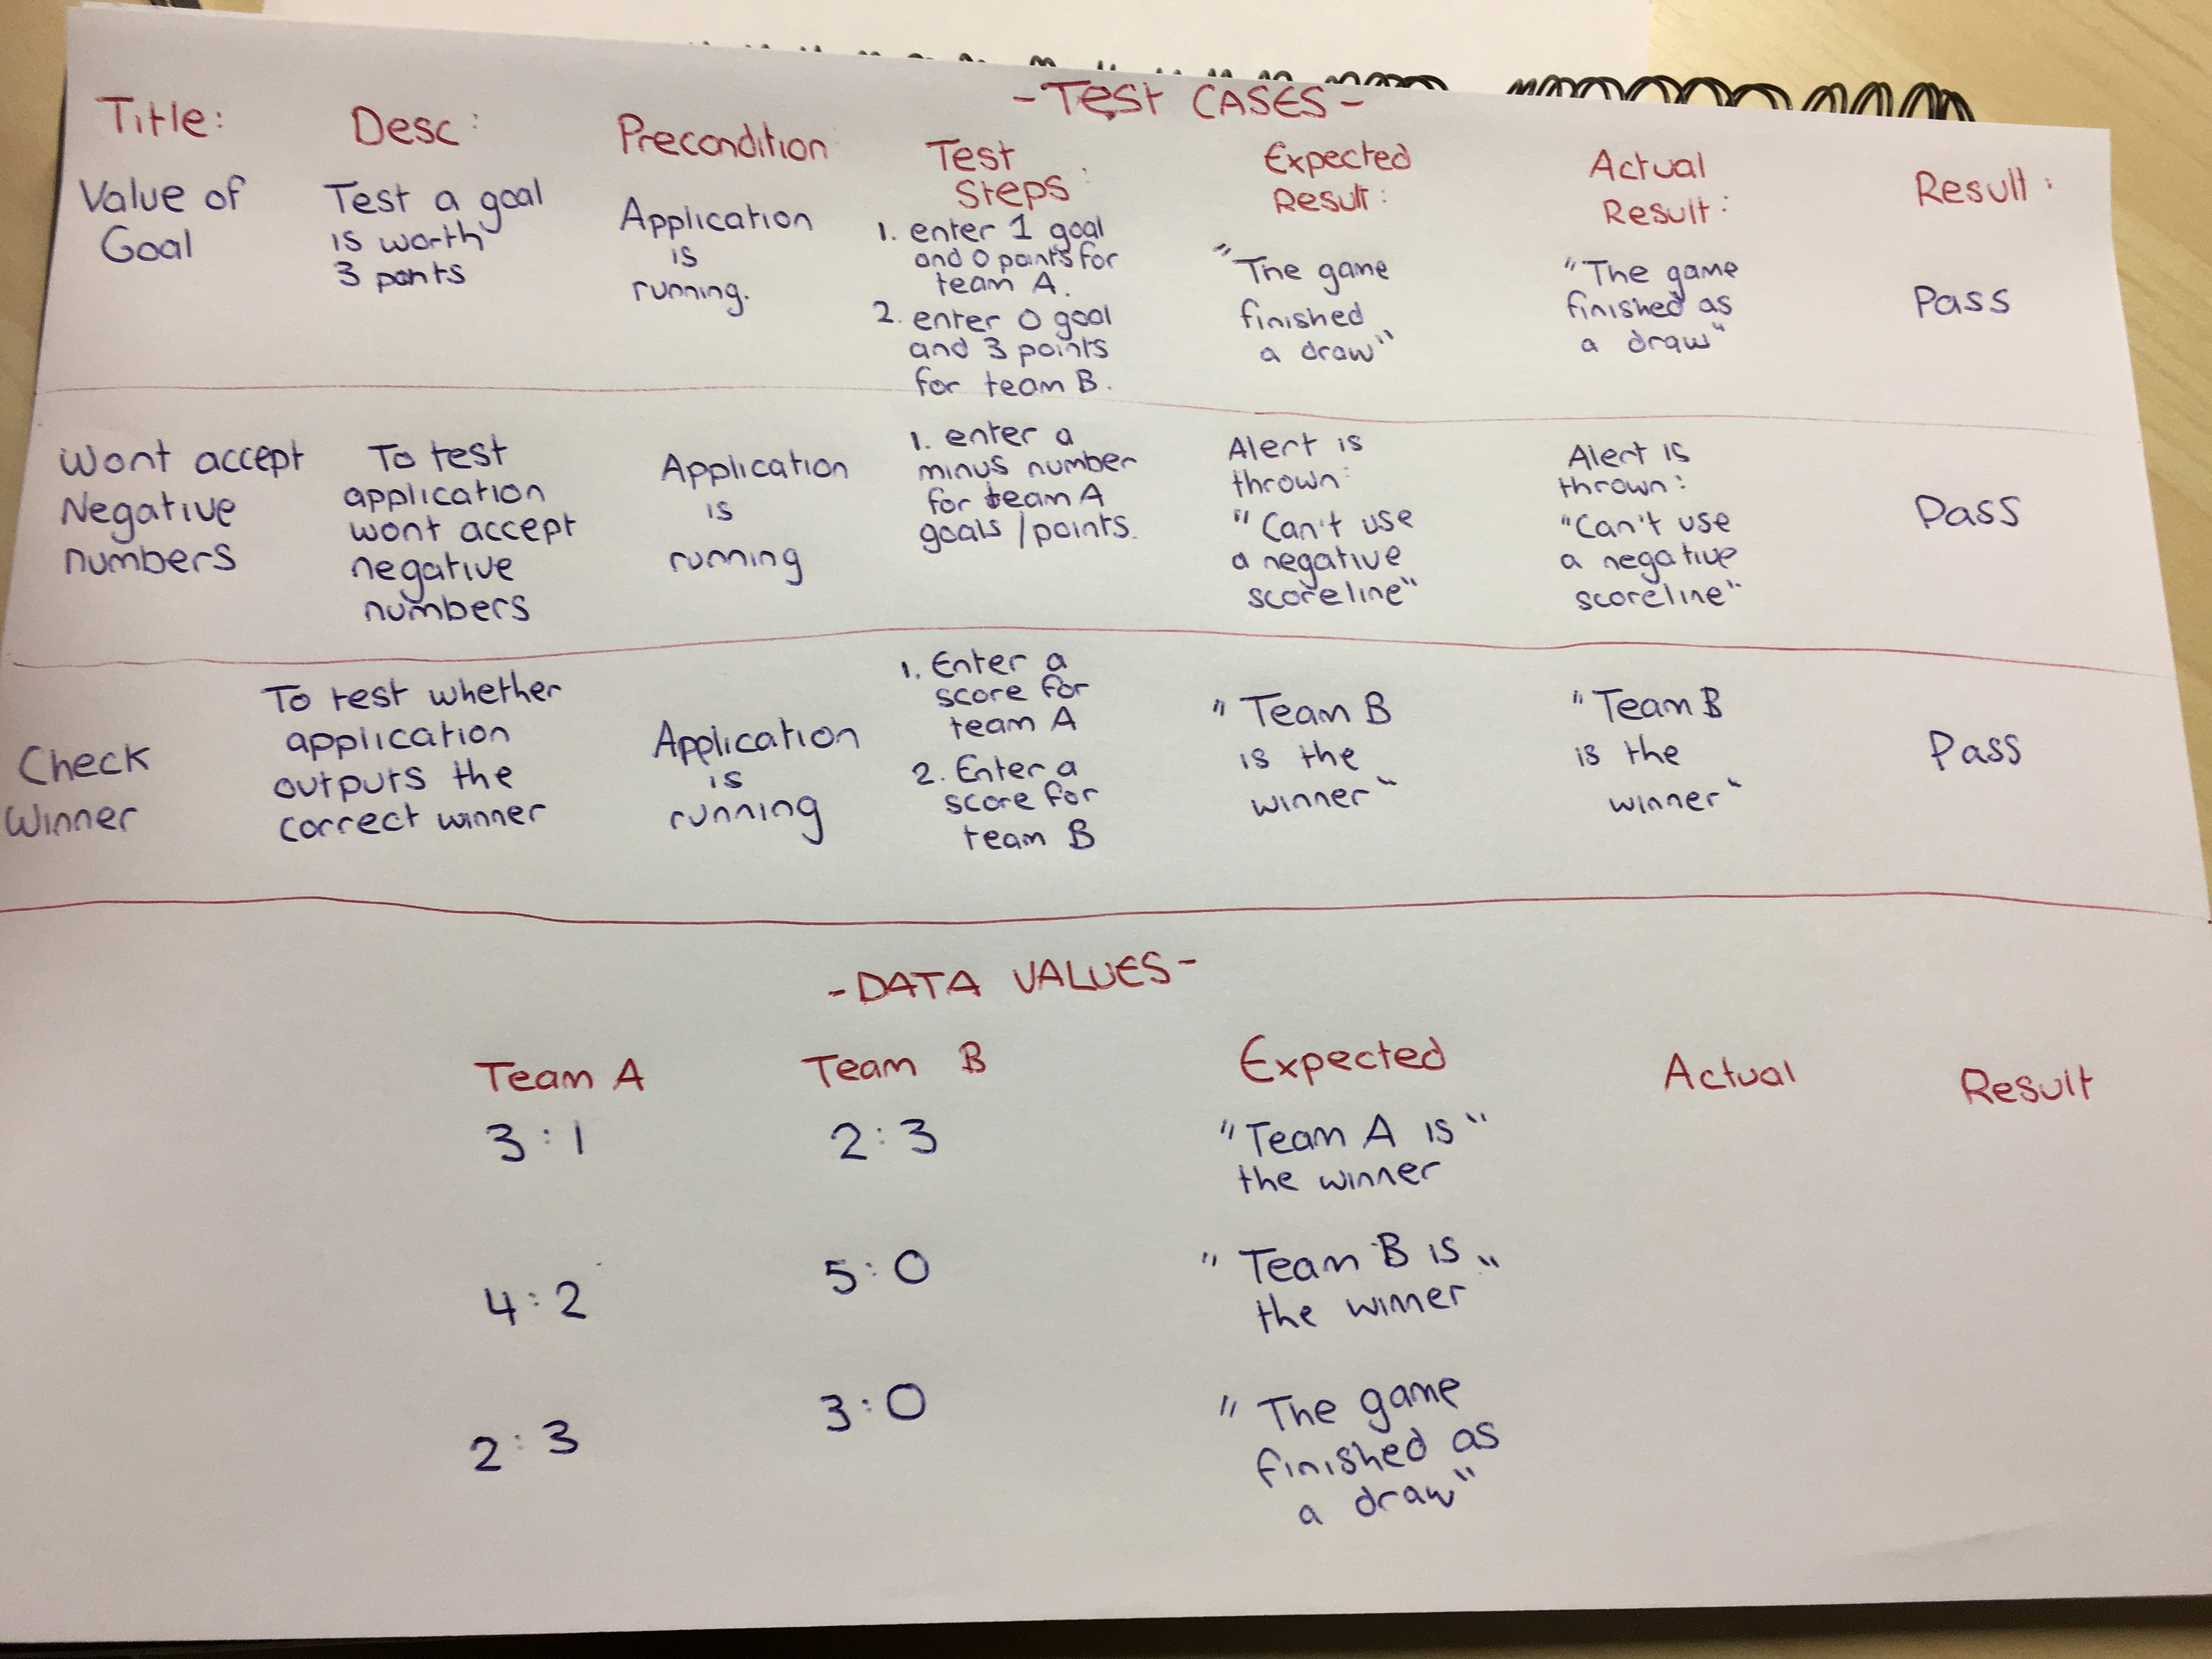 -Test CASES-
Title:
Desc:
Precondition
Test
Steps:
Expected
Result:
Actual
Result:
Result:
Value of
Goal
Test a goal
is worth
3 ponts
Application
is
running.
1. enter 1 goal
and 0 points for
team A.
2. enter 0 goal
and 3 points
for team B.
"The game
finished
a draw"
"The game
finished as
a draw"
Pass
Wont accept
Negative
numbers
To test
application
wont accept
negative
numbers
Application
is
running
1. enter a
minus number
for team A
goals/points.
Alert is
thrown:
"Can't use
a negative
scoreline"
Alert is
thrown:
"Can't use
a negative
scoreline"
Pass
Check
Winner
To test whether
application
outputs the
correct winner
Application
is
running
1. Enter a
score for
team A
2. Enter a
score for
team B
"Team B
is the
winner"
"Team B
is the
winner"
Pass
-DATA VALUES-
Team A
Team B
Expected
Actual
Result
3:1
2:3
"Team A is"
the winner
4:2
5:0
"Team B is"
the winner
2:3
3:0
"The game
finished as
a draw"